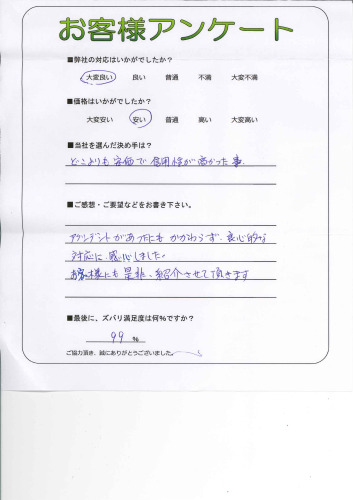 お客様アンケート
■弊社の対応はいかがでしたか？
大変良い 良い 普通 不満 大変不満
■価格はいかがでしたか？
大変安い 安い 普通 高い 大変高い
■当社を選んだ決め手は？
どこよりも安価で信用性が高かった事.
■ご感想・ご要望などをお書き下さい。
アクシデントがあったにもかかわらず、良心的な
対応に感心しました。
お客様にも是非、紹介させて頂きます
■最後に、ズバリ満足度は何%ですか？
99 %
ご協力頂き、誠にありがとうございました。